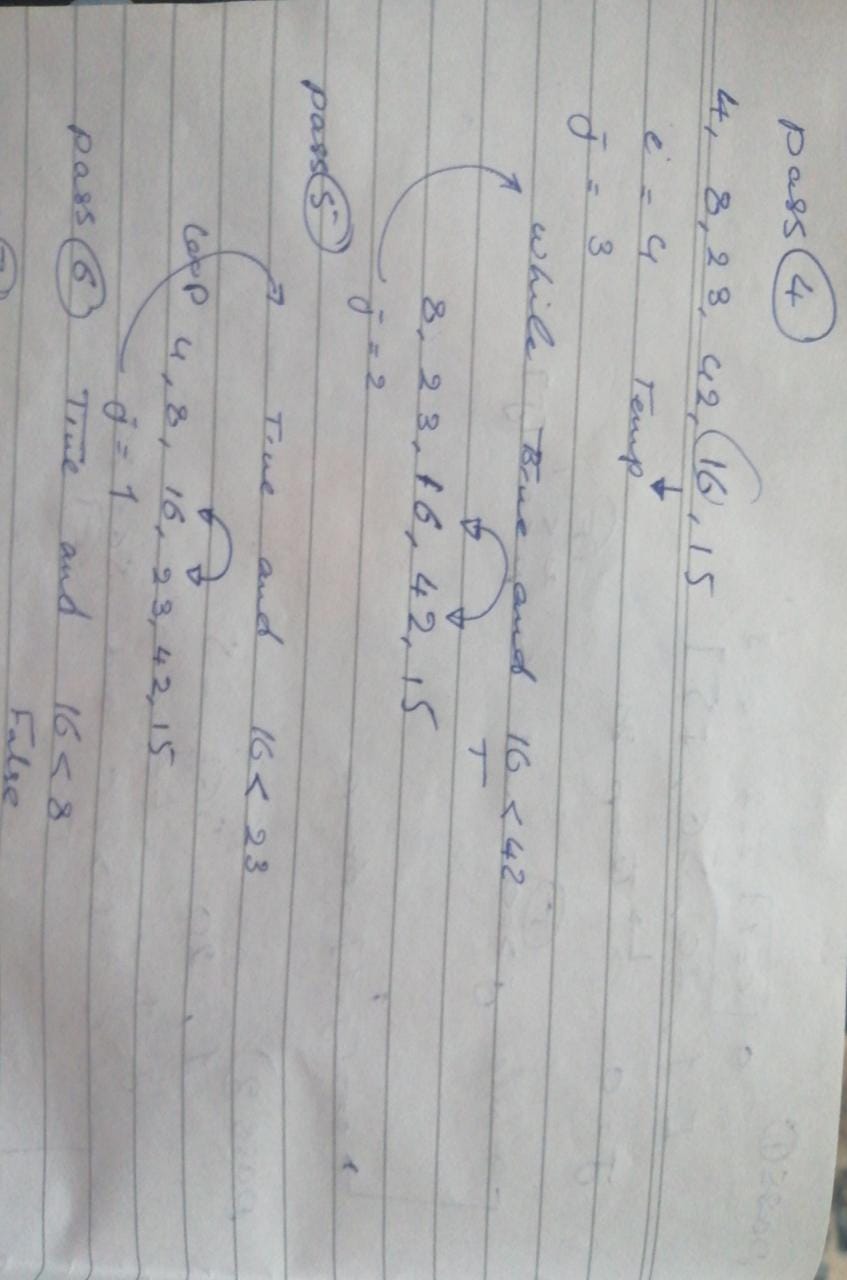 Pass 4
4, 8, 23, 42, 16, 15
i = 4 Temp
j = 3
while True and 16 < 42
T
8, 23, 16, 42, 15
j = 2
Pass 5
True and 16 < 23
Loop 4, 8, 16, 23, 42, 15
j = 1
Pass 6 True and 16 < 8
False